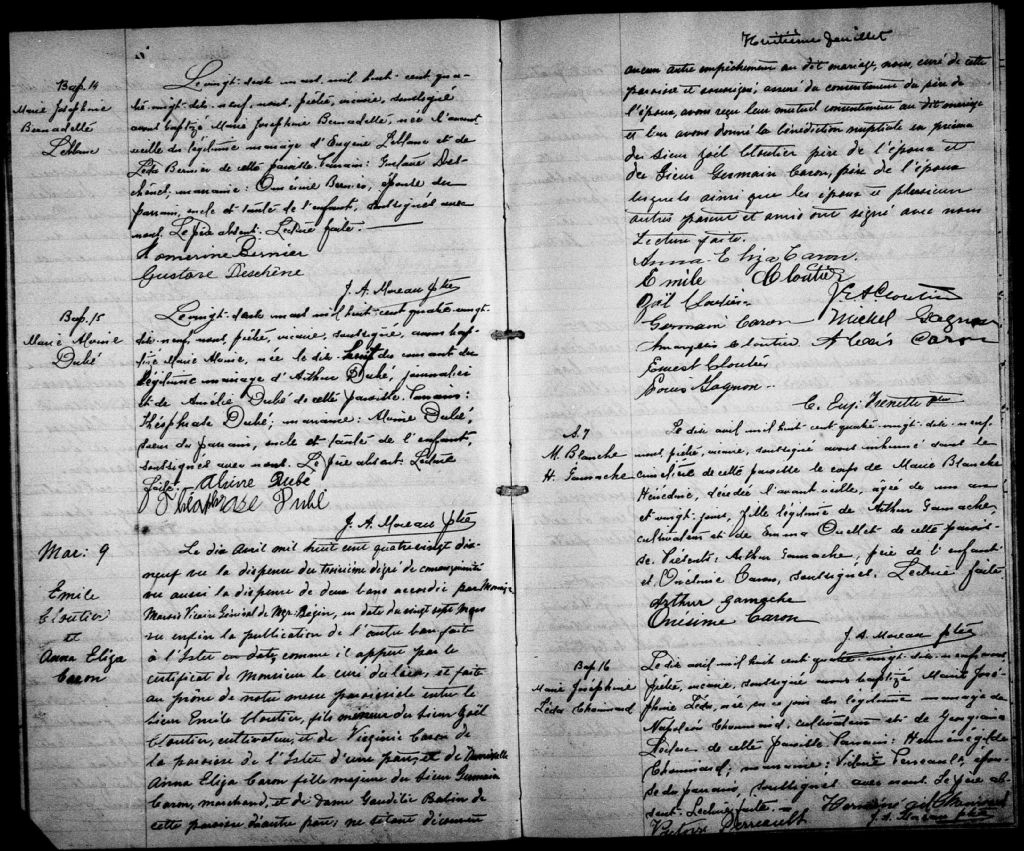 Bap. 14
Marie Josephine
Bernadette
Leblanc
Le vingt-sept mars mil huit cent qua-
tre-vingt-dix-neuf, nous, prêtre, vicaire, soussigné
avons baptizé Marie Josephine Bernadette, née l'avant
veille du légitime mariage d'Eugène Leblanc et de
Léda Bernier de cette paroisse. Parrain: Gustave Des-
chênes; marraine: Bernier, épouse du
parrain, oncle et tante de l'enfant, soussignés avec
nous. Le père absent. Lecture faite.
Bernier
Gustave Deschène
J. A. Moreau ptre
Bap. 15
Marie Alvine
Dubé
Le vingt-sept mars mil huit-cent quatre-vingt-
dix-neuf, nous, prêtre, vicaire, soussigné, avons bap-
tisé Marie Alvine, née le dix-huit du courant du
légitime mariage d'Arthur Dubé, journalier
et de Amélie Dubé de cette paroisse. Parrain:
Dubé; marraine: Alvine Dubé,
soeur du parrain, oncle et tante de l'enfant,
soussignés avec nous. Le père absent. Lecture
faite. Alvine Dubé
Dubé
J. A. Moreau ptre
Mar: 9
Emile
Cloutier
et
Anna Eliza
Caron
Le dix Avril mil huit cent quatre vingt dix
neuf vu la dispense du troisième degré de consanguinité
vu aussi la dispense de deux bans accordée par Monseigr
Marois Vicaire Général de Mgr Bégin, en date du vingt sept Mars
vu enfin la publication de l'autre ban fait
à l'Islet en date, comme il appert par le
certificat de Monsieur le curé du lieu, et faite
au prône de notre messe paroissiale entre le
Sieur Emile Cloutier, fils mineur du Sieur Zoël
Cloutier, cultivateur, et de Virginie Caron de
la paroisse de l'Islet d'une part, et de Demoiselle
Anna Eliza Caron fille majeure du Sieur Germain
Caron, marchand, et de Dame Bolin de
cette paroisse d'autre part; ne s'étant découvert
Huitième feuillet
aucun autre empêchement au dit mariage, nous, curé de cette
paroisse et soussigné, assuré du consentement du père de
l'époux, avons reçu leur mutuel consentement au dit mariage
et leur avons donné la bénédiction nuptiale en présence
du Sieur Zoël Cloutier père de l'époux et
du Sieur Germain Caron, père de l'épouse
lesquels ainsi que les époux et plusieurs
autres parents et amis ont signé avec nous
Lecture faite.
Anna-Eliza Caron.
Emile Cloutier
Zoël Cloutier J. A Cloutier
Germain Caron Michel Gagnon
François Cloutier Alexis Caron
Ernest Cloutier
Louis Gagnon
C. Eug. Frenette Ptre
S. 7
M. Blanche
H. Gamache
Le dix avril mil huit cent quatre-vingt-dix-neuf
nous, prêtre, vicaire, soussigné avons inhumé dans le
cimetière de cette paroisse le corps de Marie Blanche
décédée l'avant veille, âgée de un an
et vingt-jours, fille légitime de Arthur Gamache,
cultivateur et de Emma Ouellet de cette parois-
se. Présents: Arthur Gamache, père de l'enfant
et Onésime Caron, soussignés. Lecture faite
Arthur gamache
Onésime Caron
J. A. Moreau ptre
Bap. 16
Marie Joséphine
Léda Chouinard
Le dix avril mil huit cent quatre-vingt-dix-neuf, nous
prêtre, vicaire, soussigné avons baptizé Marie José-
phine Léda, née en ce jour du légitime mariage de
Napoléon Chouinard, cultivateur et de Georgiana
Leclerc de cette paroisse. Parrain: Herménégilde
Chouinard; marraine: Perreault, épou-
se du parrain, soussignés avec nous. Le père ab-
sent. Lecture faite. Herménégilde Chouinard
Perreault J. A. Moreau ptre